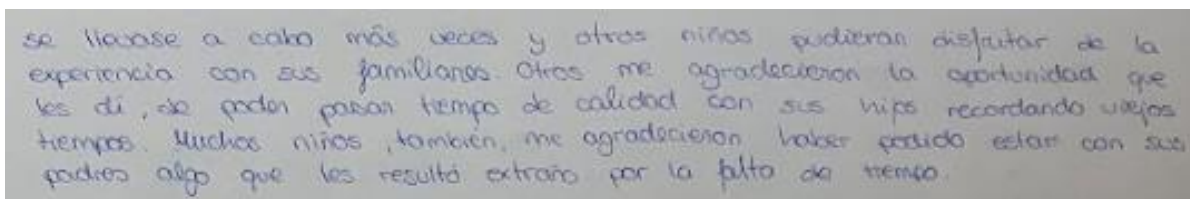 se llevase a cabo más veces y otros niños pudieran disfrutar de la
experiencia con sus familiares. Otros me agradecieron la oportunidad que
les di, de poder pasar tiempo de calidad con sus hijos recordando viejos
tiempos. Muchos niños, también, me agradecieron haber podido estar con sus
padres algo que les resultó extraño por la falta de tiempo.